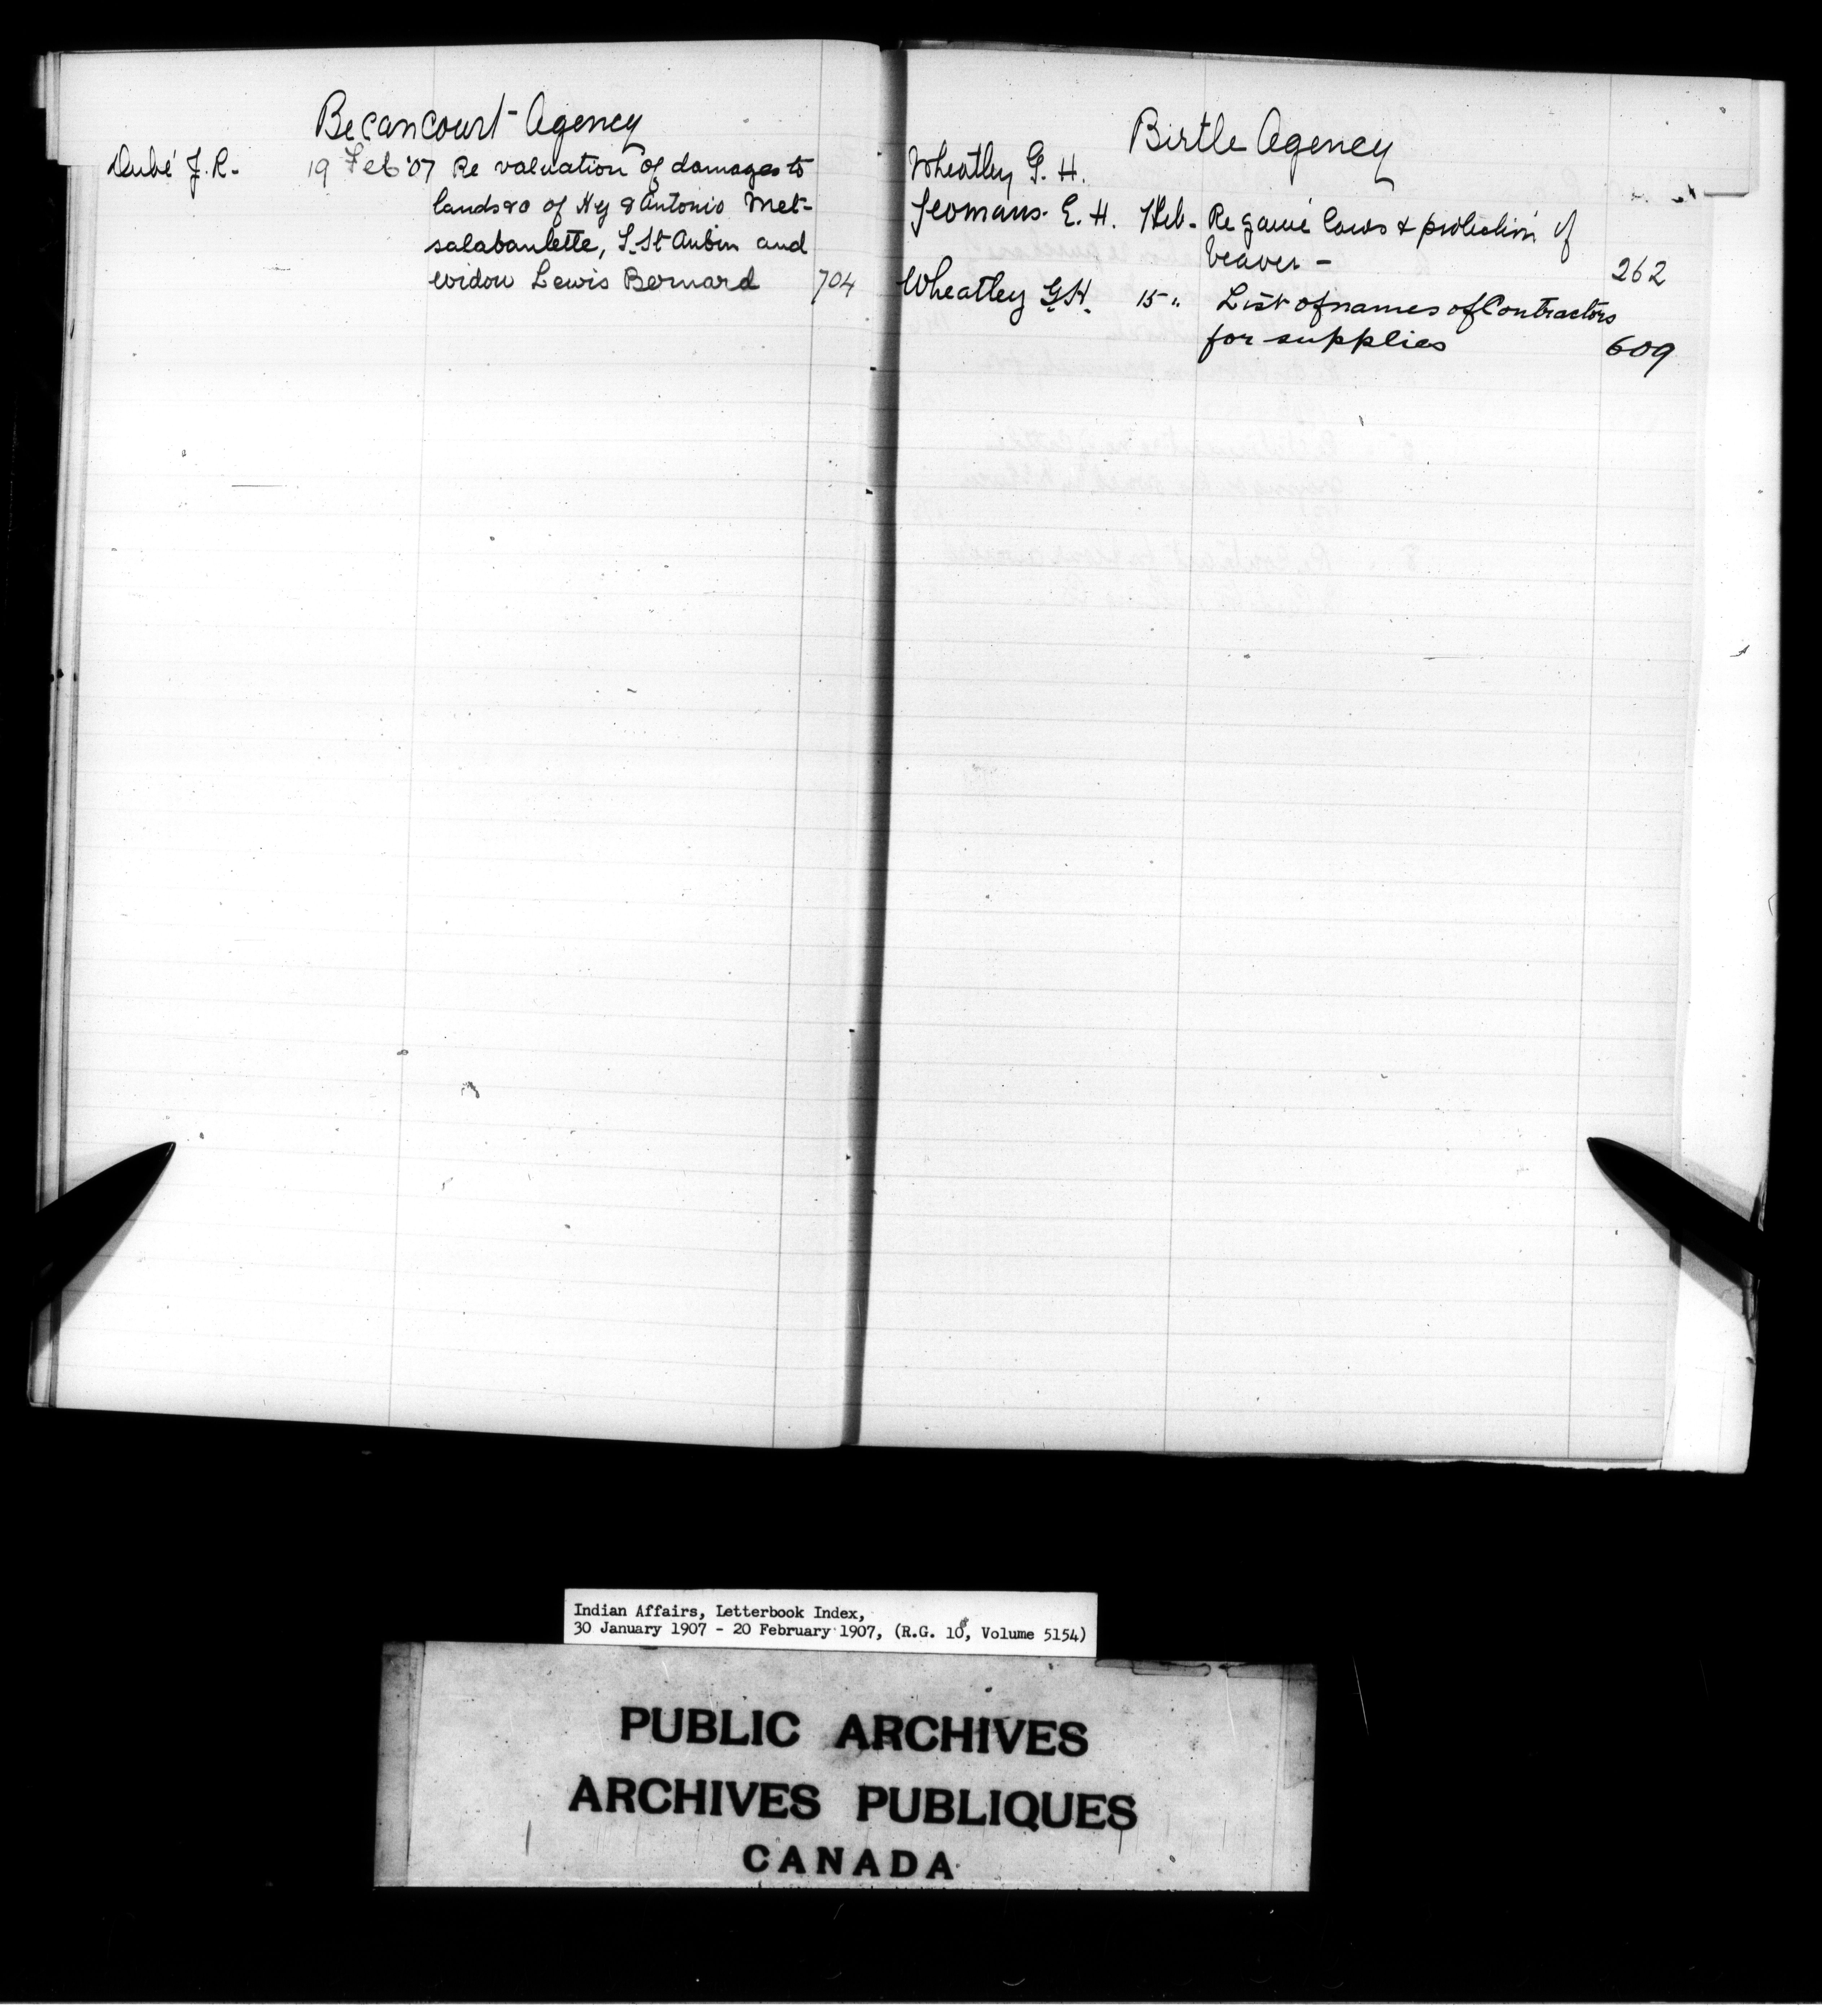 Becancourt Agency
Dubé J. R. 19 Feb '07 Re valuation of damages to
lands &c of Hy & Antonio Met-
salabanlette, L. St Aubin and
widow Lewis Bernard 704
Birtle Agency
Wheatley G. H.
Yeomans. E. H. 7 Feb. Re game laws & protection of
beaver - 262
Wheatley G.H. 15 " List of names of Contractors
for supplies 609
Indian Affairs, Letterbook Index,
30 January 1907 - 20 February 1907, (R.G. 10, Volume 5154)
PUBLIC ARCHIVES
ARCHIVES PUBLIQUES
CANADA